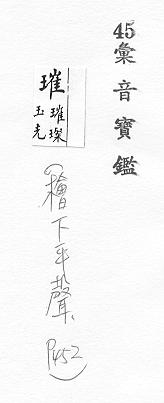 45彙音寶鑑
璀
璀璨
玉光
(檜下平聲, P452)